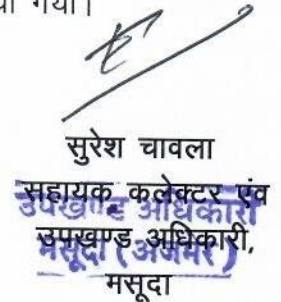 गया।
सुरेश चावला
सहायक कलेक्टर एंव
उपखण्ड अधिकारी
उपखण्ड अधिकारी,
मसूदा (अजमेर)
मसूदा